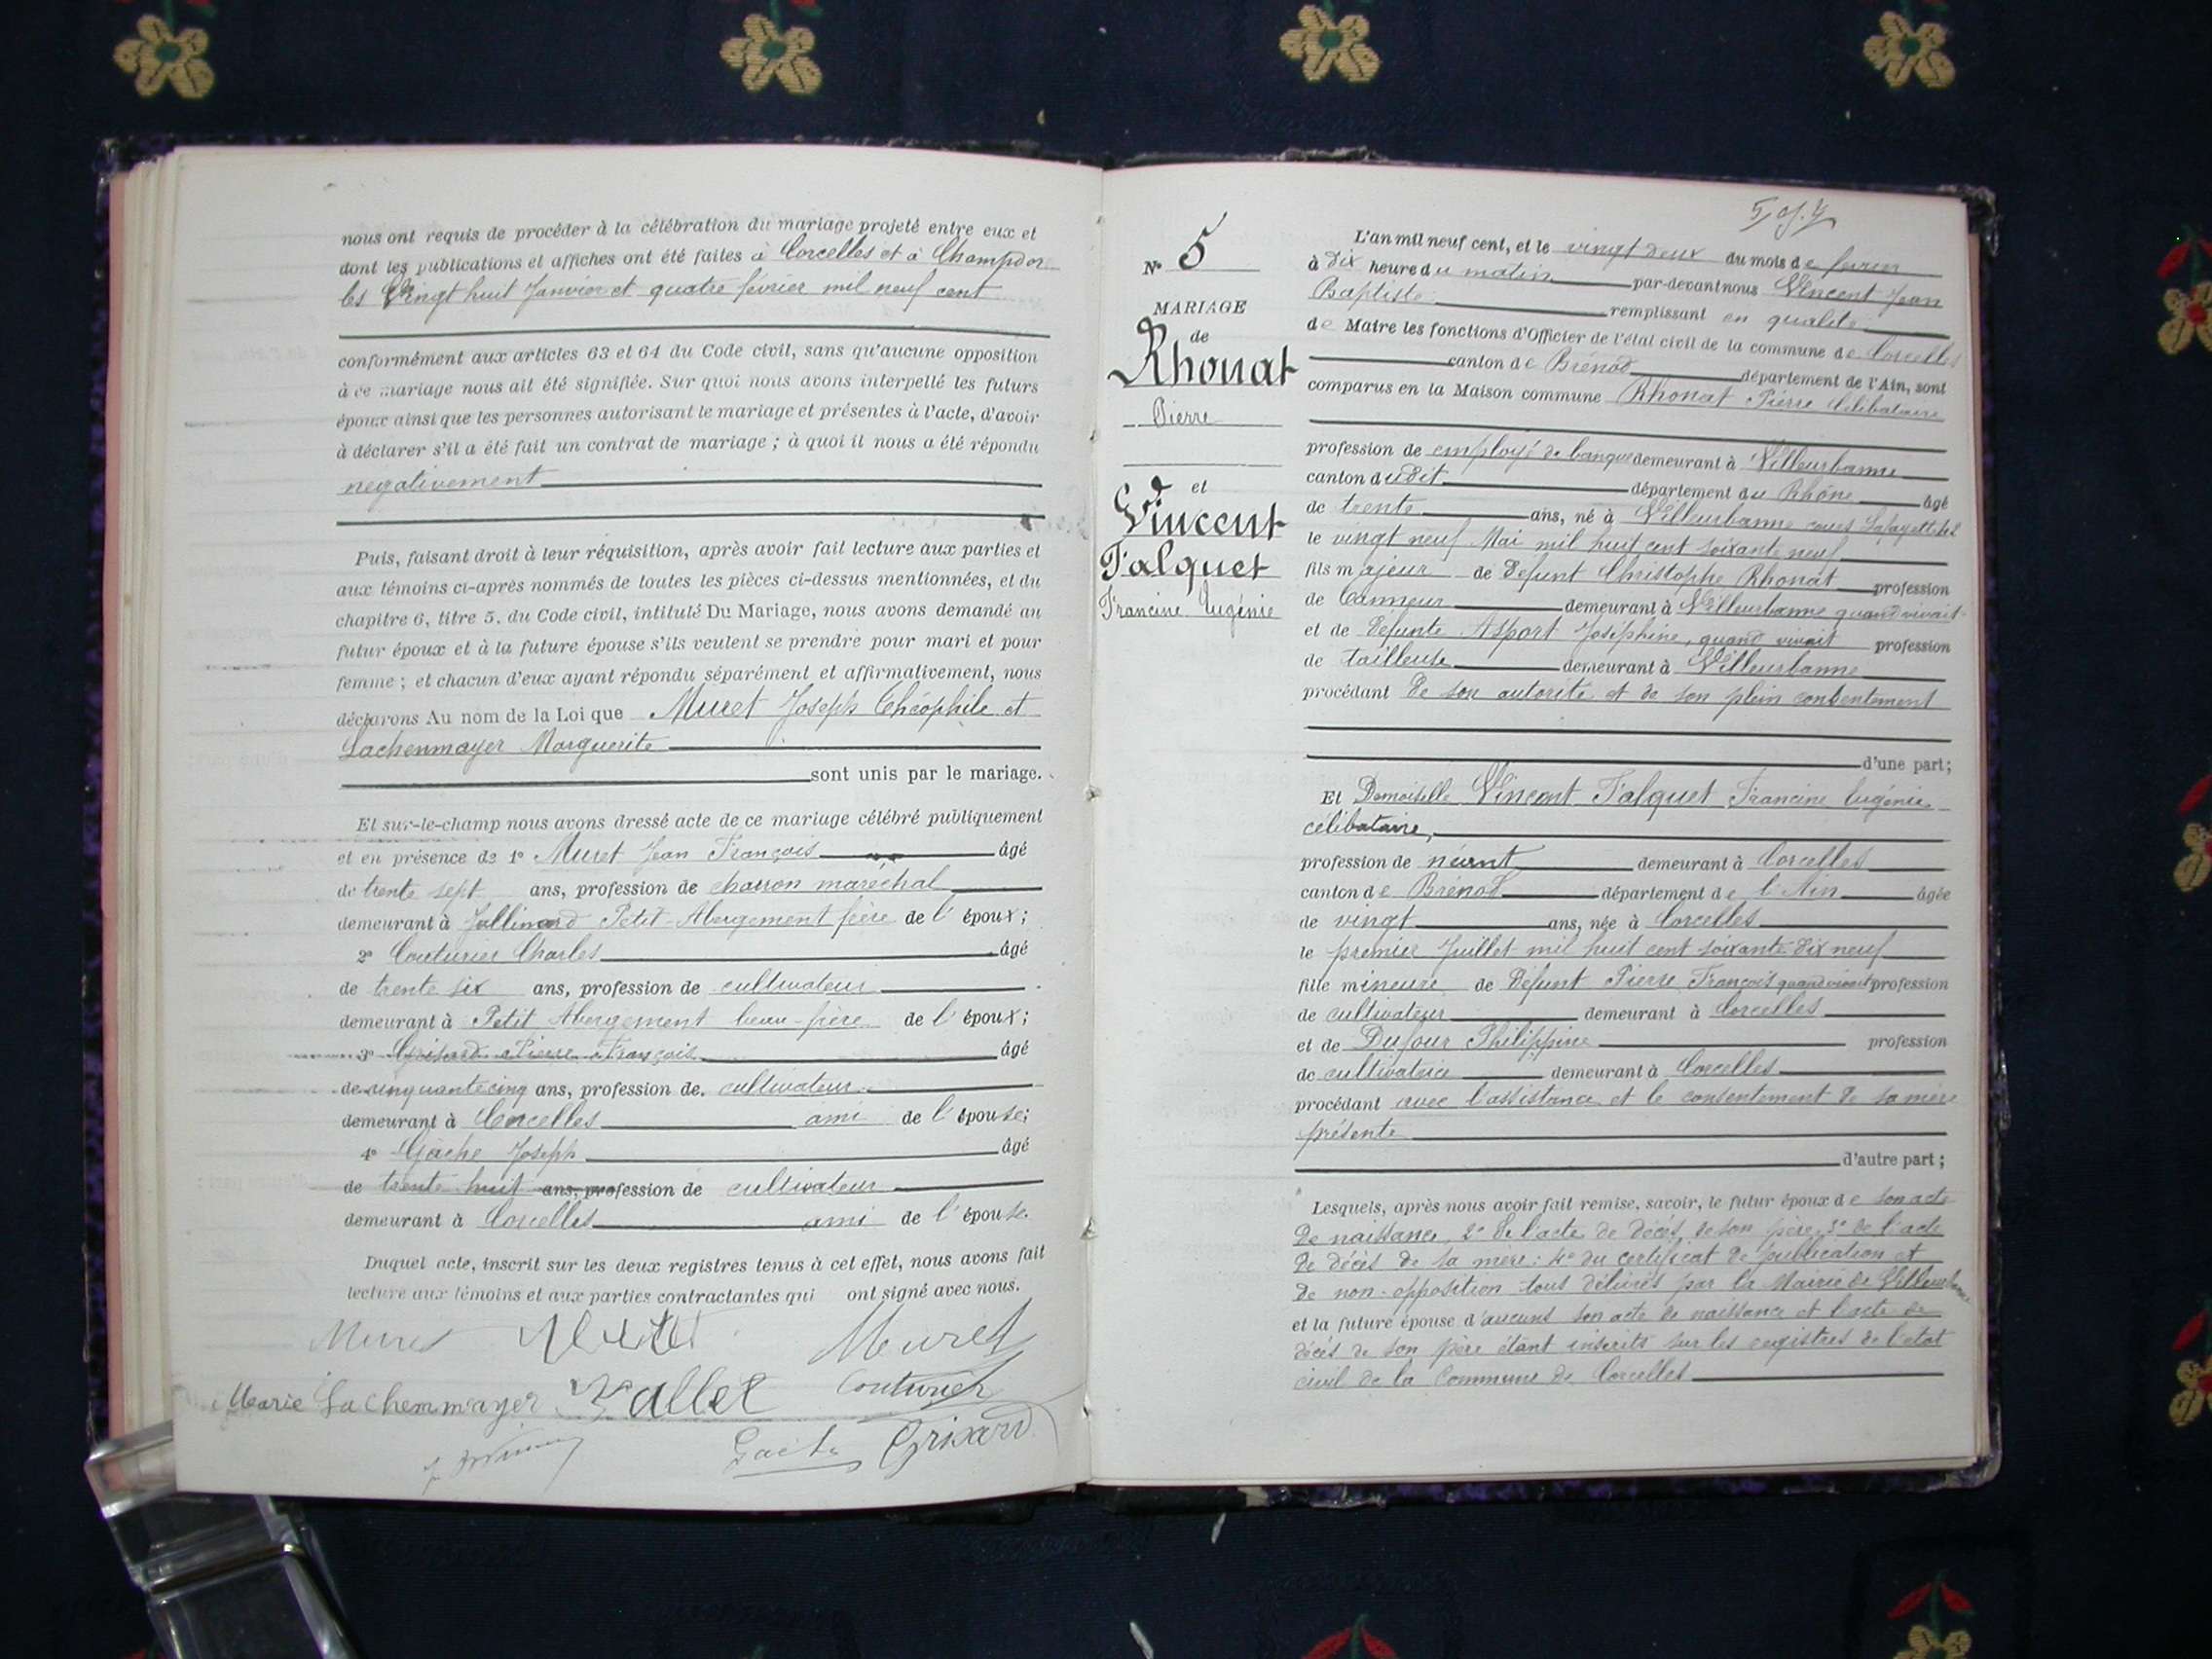 nous ont requis de procéder à la célébration du mariage projeté entre eux et
dont les publications et affiches ont été faites à Corcelles et à Champdor
les Vingt huit Janvier et quatre février mil neuf cent
conformément aux articles 63 et 64 du Code civil, sans qu'aucune opposition
à ce mariage nous ait été signifiée. Sur quoi nous avons interpellé les futurs
époux ainsi que les personnes autorisant le mariage et présentes à l'acte, d'avoir
à déclarer s'il a été fait un contrat de mariage ; à quoi il nous a été répondu
negativement
Puis, faisant droit à leur réquisition, après avoir fait lecture aux parties et
aux témoins ci-après nommés de toutes les pièces ci-dessus mentionnées, et du
chapitre 6, titre 5. du Code civil, intitulé Du Mariage, nous avons demandé au
futur époux et à la future épouse s'ils veulent se prendre pour mari et pour
femme ; et chacun d'eux ayant répondu séparément et affirmativement, nous
déclarons Au nom de la Loi que Muret Joseph Théophile et
Lachenmayer Marguerite
sont unis par le mariage.
Et sur-le-champ nous avons dressé acte de ce mariage célébré publiquement
et en présence de 1° Muret Jean François âgé
de trente sept ans, profession de charron maréchal
demeurant à Jallinard Petit-Abergement frère de l'époux ;
2° Couturier Charles âgé
de trente six ans, profession de cultivateur
demeurant à Petit Abergement beau-frère de l'époux ;
3° Grisard Pierre François âgé
de cinquante cinq ans, profession de cultivateur
demeurant à Corcelles ami de l'épouse ;
4° Gache Joseph âgé
de trente huit ans, profession de cultivateur
demeurant à Corcelles ami de l'épouse.
Duquel acte, inscrit sur les deux registres tenus à cet effet, nous avons fait
lecture aux témoins et aux parties contractantes qui ont signé avec nous.
Muret Muret
Marie Lachemmayer Vallet Couturier
Gache Grisard
N° 5
MARIAGE
de
Rhonat
Pierre
et
Vincent
Falquet
Francine Eugénie
L'an mil neuf cent, et le vingt deux du mois de fevrier
à dix heure du matin par-devant nous Vincent Jean
Baptiste remplissant en qualité
de Maire les fonctions d'Officier de l'état civil de la commune de Corcelles
canton de Brénod département de l'Ain, sont
comparus en la Maison commune Rhonat Pierre Célibataire
profession de employé de banque demeurant à Villeurbanne
canton du dit département du Rhône âgé
de trente ans, né à Villeurbanne cours Lafayette
le vingt neuf Mai mil huit cent soixante neuf
fils majeur de défunt Christophe Rhonat profession
de Canneur demeurant à Villeurbanne quand vivait
et de défunte Asport Joséphine, quand vivait profession
de tailleuse demeurant à Villeurbanne
procédant de son autorité et de son plein consentement
d'une part ;
Et Demoiselle Vincent Falquet Francine Eugénie
célibataire,
profession de néant demeurant à Corcelles
canton de Brénod département de l'Ain âgée
de vingt ans, née à Corcelles
le premier Juillet mil huit cent soixante dix neuf
fille mineure de défunt Pierre François quand vivait profession
de cultivateur demeurant à Corcelles
et de Dufour Philippine profession
de cultivatrice demeurant à Corcelles
procédant avec l'assistance et le consentement de sa mère
présente
d'autre part ;
Lesquels, après nous avoir fait remise, savoir, le futur époux de son acte
de naissance, 2° de l'acte de décès de son père, 3° de l'acte
de décès de sa mère : 4° du certificat de publication et
de non-opposition tous délivrés par la Mairie de Villeurbanne
et la future épouse d'aucuns son acte de naissance et l'acte de
décès de son père étant inscrits sur les registres de l'état
civil de la Commune de Corcelles